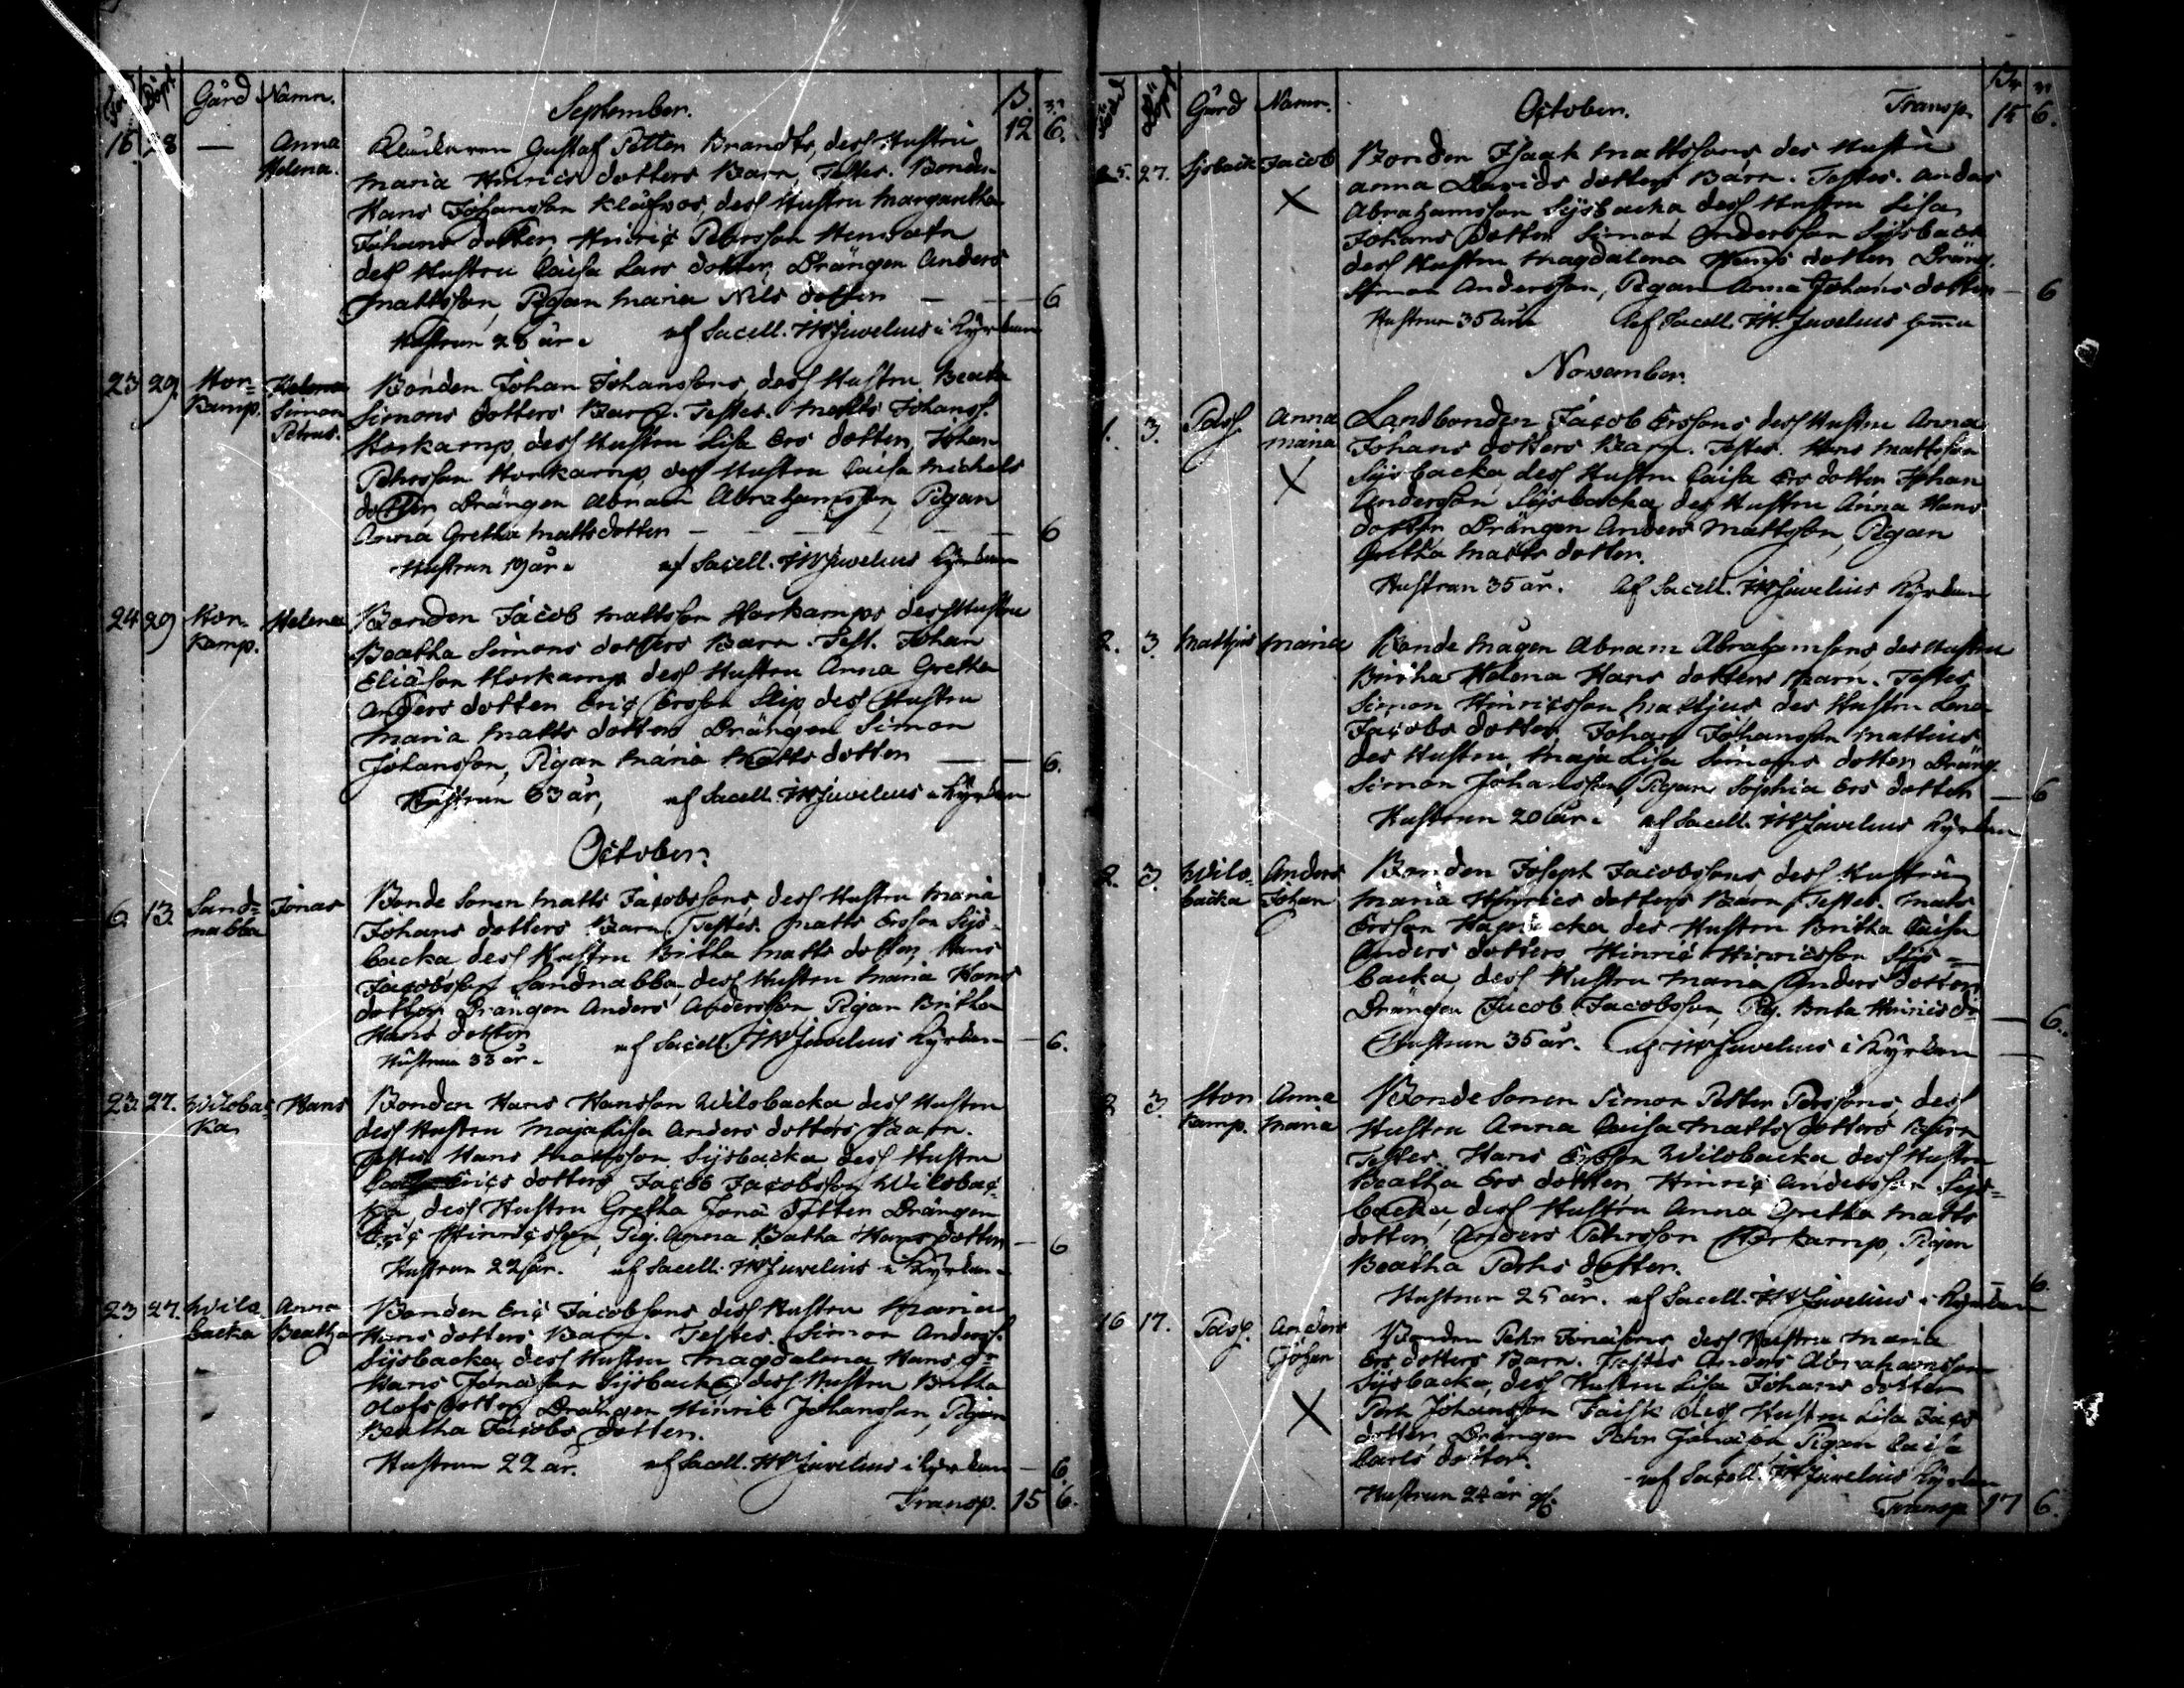 Född Döpt Gård Namn. September. B. 
16 28 — Anna Gustaf Petter Brandts, dess Hustru 12 6.
Helena. Maria Hinrics dotters Barn, Testes. Bonden
Hans Johansson Klåfvos, dess Hustru Margaretha
Johans dotter, Hinric Petersson
dess Hustru Caisa Lars dotter, Drängen Anders
Mattsson, Pigan Maria Nils dotter — — 6
Hustrun 28 år. af Sacell. JW Juvelius i Kyrkan
23 29. Hor- Helena Bonden Johan Johanssons, dess Hustru Beata
kamp. Simon Simons dotters Barn. Testes. Matts Johanss.
Petrus. Horkamp, dess Hustru Lisa Ers dotter, Johan
Pehrsson Horkamp, dess Hustru Caisa Michels
dotter, Drängen Abram Abrahamsson, Pigan
Anna Gretha Matts dotter — — — 6
Hustrun 19 år. af Sacell. JW Juvelius Kyrkan
24 29 Hor- Helena Bonden Jacob Mattsson Horkamps, dess Hustru
kamp. Beatha Simons dotters Barn. Test. Johan
Eliasson Horkamp dess Hustru Anna Gretha
Anders dotter, Eric Ersson Slip, dess Hustru
Maria Matts dotter, Drängen Simon
Johansson, Pigan Maria Matts dotter — — 6.
Hustrun 33 år, af Sacell. JW Juvelius i Kyrkan
October.
6. 13. Sand- Jonas Bonde Sonen Matts Jacobssons dess Hustru Maria
nabba Johans dotters Barn, Testes. Matts Ersson Sijs-
backa, dess Hustru Britha Matts dotter, Hans
Jacobsson Sandnabba, dess Hustru Maria Hans
dotter, Drängen Anders Andersson, Pigan Britha
Hans dotter. af Sacell. JW Juvelius Kyrkan — 6.
Hustrun 33 år.
23. 27. Wilsbac Hans Bonden Hans Hansson Wilsbacka, dess Hustru
ka dess Hustru Maja Lisa Anders dotters Barn.
Testes. Hans Mattsson Sijsbacka dess Hustru
Erics dotter, Jacob Jacobsson Wilsbac-
ka, dess Hustru Gretha Jona Dotter, Drängen
Eric Hinricsson, Pig. Anna Beatha Hans dotter — 6
Hustrun 22 år. af Sacell. JW Juvelius i Kyrkan
23 27. Wils- Anna Bonden Eric Jacobssons dess Hustru Maria
backa Beatha Hans dotters Barn. Testes. Simon Anderss.
Sijsbacka, dess Hustru Magdalena Hans d=
Hans Jonasson Sijsbacka, dess Hustru Britta
Olofs dotter, Drängen Hinrik Johansson, Pigan
Beatha Jacobs dotter.
Hustrun 22 år. af Sacell. JW Juvelius i Kyrkan — 6.
Transp. 15 6.
Född Döpt Gård Namn. October. Transp. 15 6.
25. 27. Sijsback Jacob Bonden Isaak Mattssons des Hustru
X Anna Davids dotters Barn. Testes. Anders
Abrahamsson Sijsbacka dess Hustru Lisa
Johans Dotter, Simon Andersson Sijsbacka
dess Hustru Magdalena Hans dotter, Dräng.
Simon Andersson, Pigan Anna Johans dotter — 6
Hustrun 35 år. Af Sacell. JW. Juvelius hemma
November.
1. 3. Påss. Anna Landbonden Jacob Erssons dess Hustru Anna
Maria Johans dotters Barn. Testes. Hans Mattsson
X Sijsbacka, dess Hustru Caisa Ers dotter, Johan
Andersson Sijsbacka, des Hustru Anna Hans
dotter, Drängen Anders Mattsson, Pigan
Gretha Matts dotter.
Hustrun 35 år. Af Sacell. JW Juvelius Kyrkan
2. 3. Mattjus Maria Bonde Mågen Abram Abrahamsons, des Hustru
Biritha Helena Hans dotters Barn. Testes,
Simon Hinricsson Mattjus des Hustru Lena
Jacobs dotter, Johan Johansson Mattius,
des Hustru Maja Lisa Simons dotter, Dräng.
Simon Johansson, Pigan Sophia Ers dotter — 6
Hustrun 20 år. af Sacell. JW Juvelius Kyrkan
2. 3. Wils- Anders Bonden Joseph Jacobssons dess Hustru
backa Johan Maria Hinrics dotters Barn, Testes. Mats
Ersson des Hustru Britha Caisa
Anders dotter, Hinric Hinricsson Sijs-
backa, dess Hustru Maria Anders dotter,
Drängen Jacob Jacobsson, Pig. Brita Hinrics d= — 6.
Hustrun 35 år. af JW Juvelius i Kyrkan
2 3. Hor Anna Bonde Sonen Simon Petter Perssons, dess
kamp. Maria Hustru Anna Caisa Matts dotters Barn
Testes. Hans Ersson Wilsbacka dess Hustru
Beatha Ers dotter, Hinric Andersson Sijs-
backa, dess Hustru Anna Gretha Matts
dotter, Anders Pehrsson Horkamp, Pigan
Beatha Pehrs dotter.
Hustrun 25 år. af Sacell. JW Juvelius i Kyrkan 6.
16 17. Påss. Anders Bonden Pehr Jonassons dess Hustru Maria
Johan Ers dotters Barn. Testes Anders Abrahamsson
Sijsbacka, dess Hustru Lisa Johans dotter
X Pehr Johansson Faisk dess Hustru Lisa Jacs
dotter, Drängen Pehr Jonasson, Pigan Caisa
Carls dotter. af Sacell. JW Juvelius Kyrkan
Hustrun 24 år
Transp 17 6.